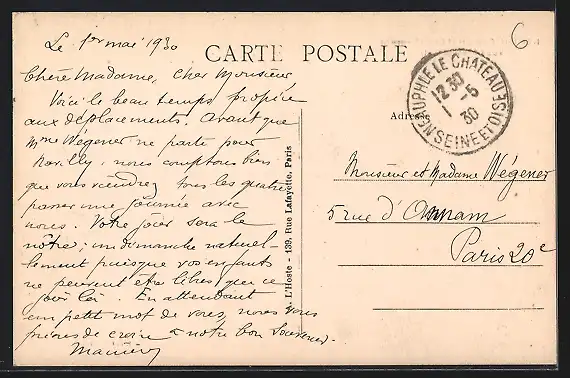 Le 1er mai 1930
CARTE POSTALE
6
Chère Madame, cher Monsieur
Voici le beau temps propice
aux déplacements. Avant que
Mme Wégener ne parte pour
nous comptons bien
que vous viendrez tous les quatre
passer une journée avec
nous. Votre jour sera le
nôtre; un dimanche naturel-
lement puisque vos enfants
ne peuvent être libres que ce
jour là. En attendant
un petit mot de vous, nous vous
prions de croire à notre bon souvenir.
L'Hoste - 139, Rue Lafayette, Paris
NEAUPHLE LE CHATEAU
12 30
1-5
30
SEINE ET OISE
Adresse
Monsieur et Madame Wégener
5 rue d'Annam
Paris 20e